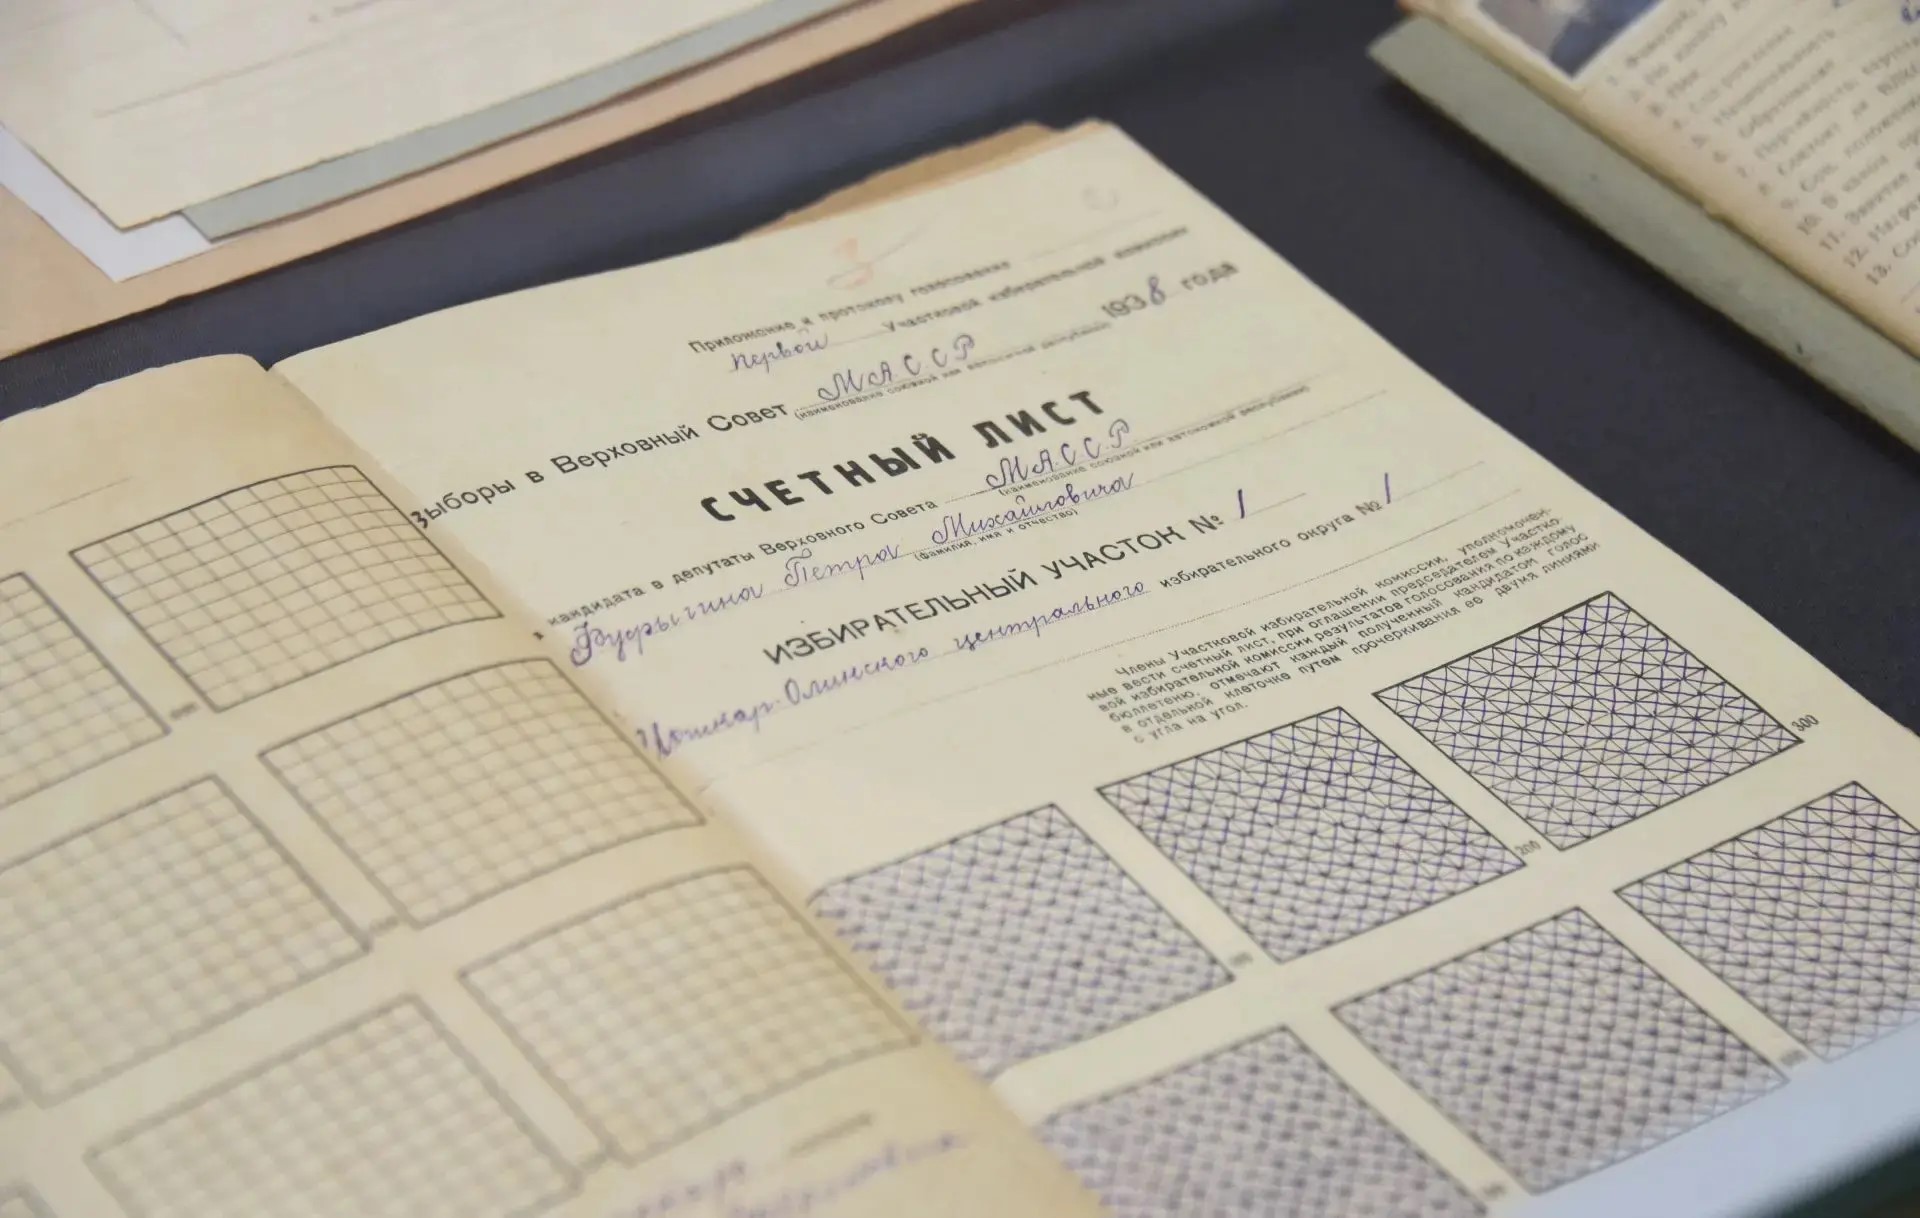 Приложение к протоколу голосования
первой Участковой избирательной комиссии
Выборы в Верховный Совет М.А.С.С.Р 1938 года
(наименование союзной или автономной республики)
СЧЕТНЫЙ ЛИСТ
кандидата в депутаты Верховного Совета М.А.С.С.Р.
(наименование союзной или автономной республики)
Петра Михайловича
(фамилия, имя и отчество)
ИЗБИРАТЕЛЬНЫЙ УЧАСТОК № 1
Йошкар-Олинского центрального избирательного округа № 1
Члены Участковой избирательной комиссии, уполномочен-
ные вести счетный лист, при оглашении председателем Участко-
вой избирательной комиссии результатов голосования по каждому
бюллетеню, отмечают каждый полученный кандидатом голос
в отдельной клеточке путем прочеркивания ее двумя линиями
с угла на угол.
200
300
1. Фамилия,
4. Год рождения
5. Национальность
6. Образование
7. Партийность
8. Состоит ли
9. Соц. положение
10. В каких
11. Занятие
12.
13.